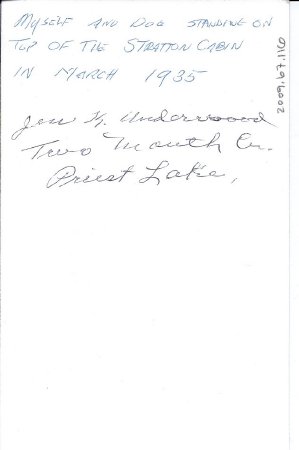 Myself and Dog standing on
Top of the Stratton Cabin
in March 1935
Underwood
Two Mouth Cr.
Priest Lake,
2009.67.110